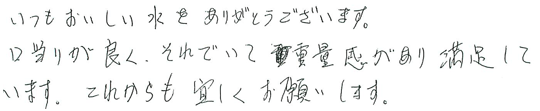 いつもおいしい水をありがとうございます。
口当りが良く、それでいて重量感があり満足して
います。これからも宜しくお願いします。